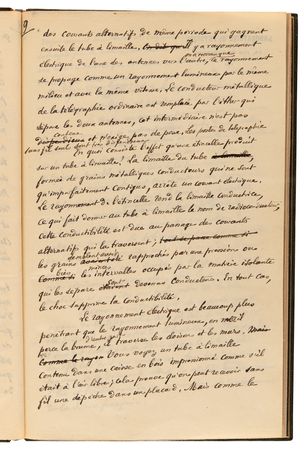 9
des courants alternatifs, de même période qui gagnent
ensuite le tube à limaille. Il y a rayonnement
électrique de l'une des antennes vers l'autre, le rayonnement
se propage comme un rayonnement lumineux par le même
milieu et avec la même vitesse; le conducteur métallique
de la télégraphie ordinaire est remplacé par l'éther qui
sépare les deux antennes, cet intermédiaire n'est pas
coûteux
et n'exige pas de pose, les postes de télégraphie
sans fil
En quoi consiste l'effet qu'une étincelle produit
sur un tube à limaille? La limaille du tube
formée de grains métalliques conducteurs qui ne sont
qu'imparfaitement contigus, arrête un courant électrique.
Le rayonnement de l'étincelle rend la limaille conductrice,
ce qui fait donner au tube à limaille le nom de radioconducteur;
cette conductibilité est due au passage des courants
alternatifs qui la traversent;
les grains semblent aussi rapprochés par une pression ou
bien les intervalles occupés par la matière isolante
qui les sépare sont devenus conducteurs. En tout cas,
le choc supprime la conductibilité.
Le rayonnement électrique est beaucoup plus
pénétrant que le rayonnement lumineux,
perce la brume, il traverse les cloisons et les murs.
Vous voyez un tube à limaille
contenu dans une caisse en bois impressionné comme s'il
était à l'air libre; cela prouve qu'on peut recevoir sans
fil une dépêche dans un placard. Mais comme le